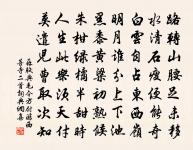 路轉山腰足未移
水清石瘦便能奇
白雲自占東西嶺
明月誰分上下池
黑黍黃粱初熟後
朱柑綠橘半甜時
人生此樂須天付
莫遣兒曹取次知
蘇軾與毛令方尉遊西
菩寺二首